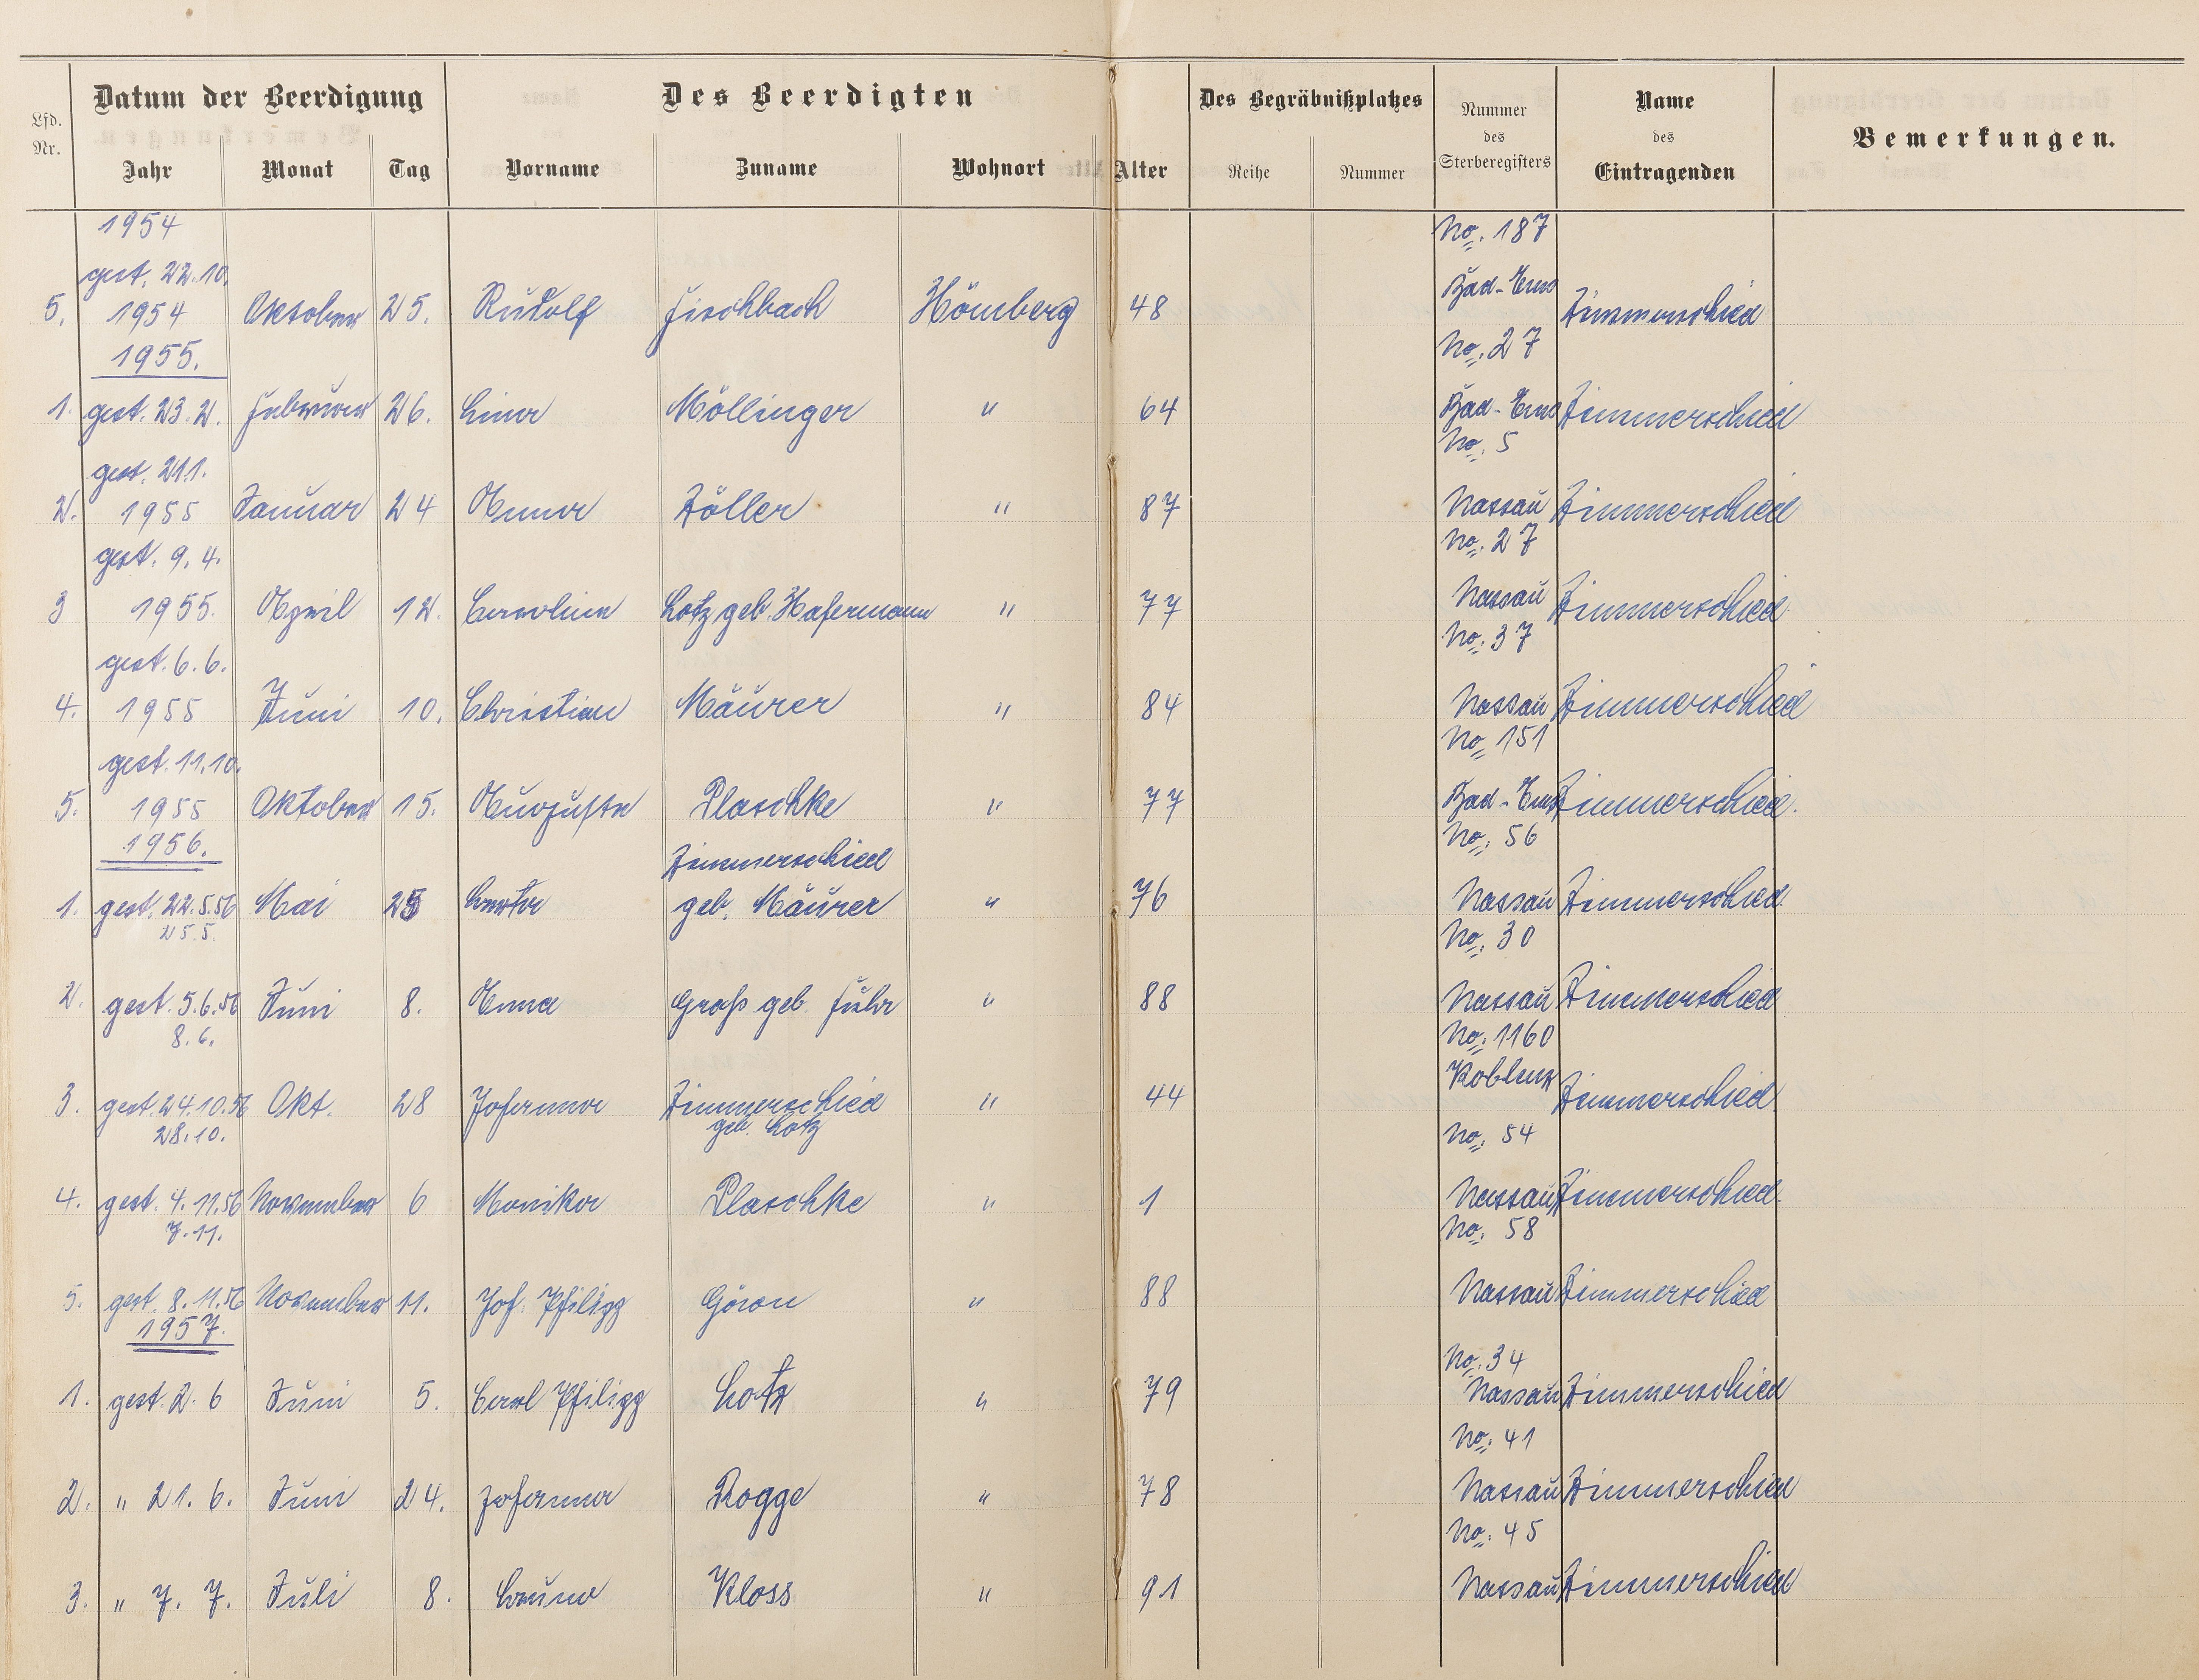 Lfd. Nr.
Datum der Beerdigung
Jahr Monat Tag
Des Beerdigten
Vorname Zuname Wohnort Alter
Des Begräbnißplatzes
Reihe Nummer
Nummer des Sterberegisters
Name des Eintragenden
Bemerkungen.
1954 No. 187
gest. 22.10. Bad-Ems
5. 1954 Oktober 25. Rudolf Fischbach Hömberg 48 Zimmerschied
1955. No. 27
1. gest. 23.2. Februar 26. Lina Möllinger " 64 Bad-Ems Zimmerschied
gest. 21.1. No. 5
2. 1955 Januar 24 Anna Zöller " 87 Nassau Zimmerschied
gest. 9.4. No. 27
3 1955. April 12. Carolina Lotz geb. Hafermann " 77 Nassau Zimmerschied
gest. 6.6. No. 37
4. 1955 Juni 10. Christian Mäurer " 84 Nassau Zimmerschied
gest. 11.10. No. 151
5. 1955 Oktober 15. Auguste Plaschke " 77 Bad-Ems Zimmerschied.
1956. Zimmerschied No. 56
1. gest. 22.5.56 Mai 25 geb. Mäurer " 76 Nassau Zimmerschied
25.5. No. 30
2. gest. 5.6.56 Juni 8. Anna Groß geb. Führ " 88 Nassau Zimmerschied
8.6. No. 1160
3. gest. 24.10.56 Okt. 28 Johanna Zimmerschied " 44 Koblenz Zimmerschied
28.10. geb. Lotz No. 54
4. gest. 4.11.56 November 6 Monika Plaschke " 1 Nassau Zimmerschied
7.11. No. 58
5. gest. 8.11.56 November 11. Joh. Philipp " 88 Nassau Zimmerschied
1957. No. 34
1. gest. 2.6 Juni 5. Carl Philipp Lotz " 79 Nassau Zimmerschied
No. 41
2. " 21.6. Juni 24. Johanna Rogge " 78 Nassau Zimmerschied
No. 45
3. " 7.7. Juli 8. Kloss " 91 Nassau Zimmerschied